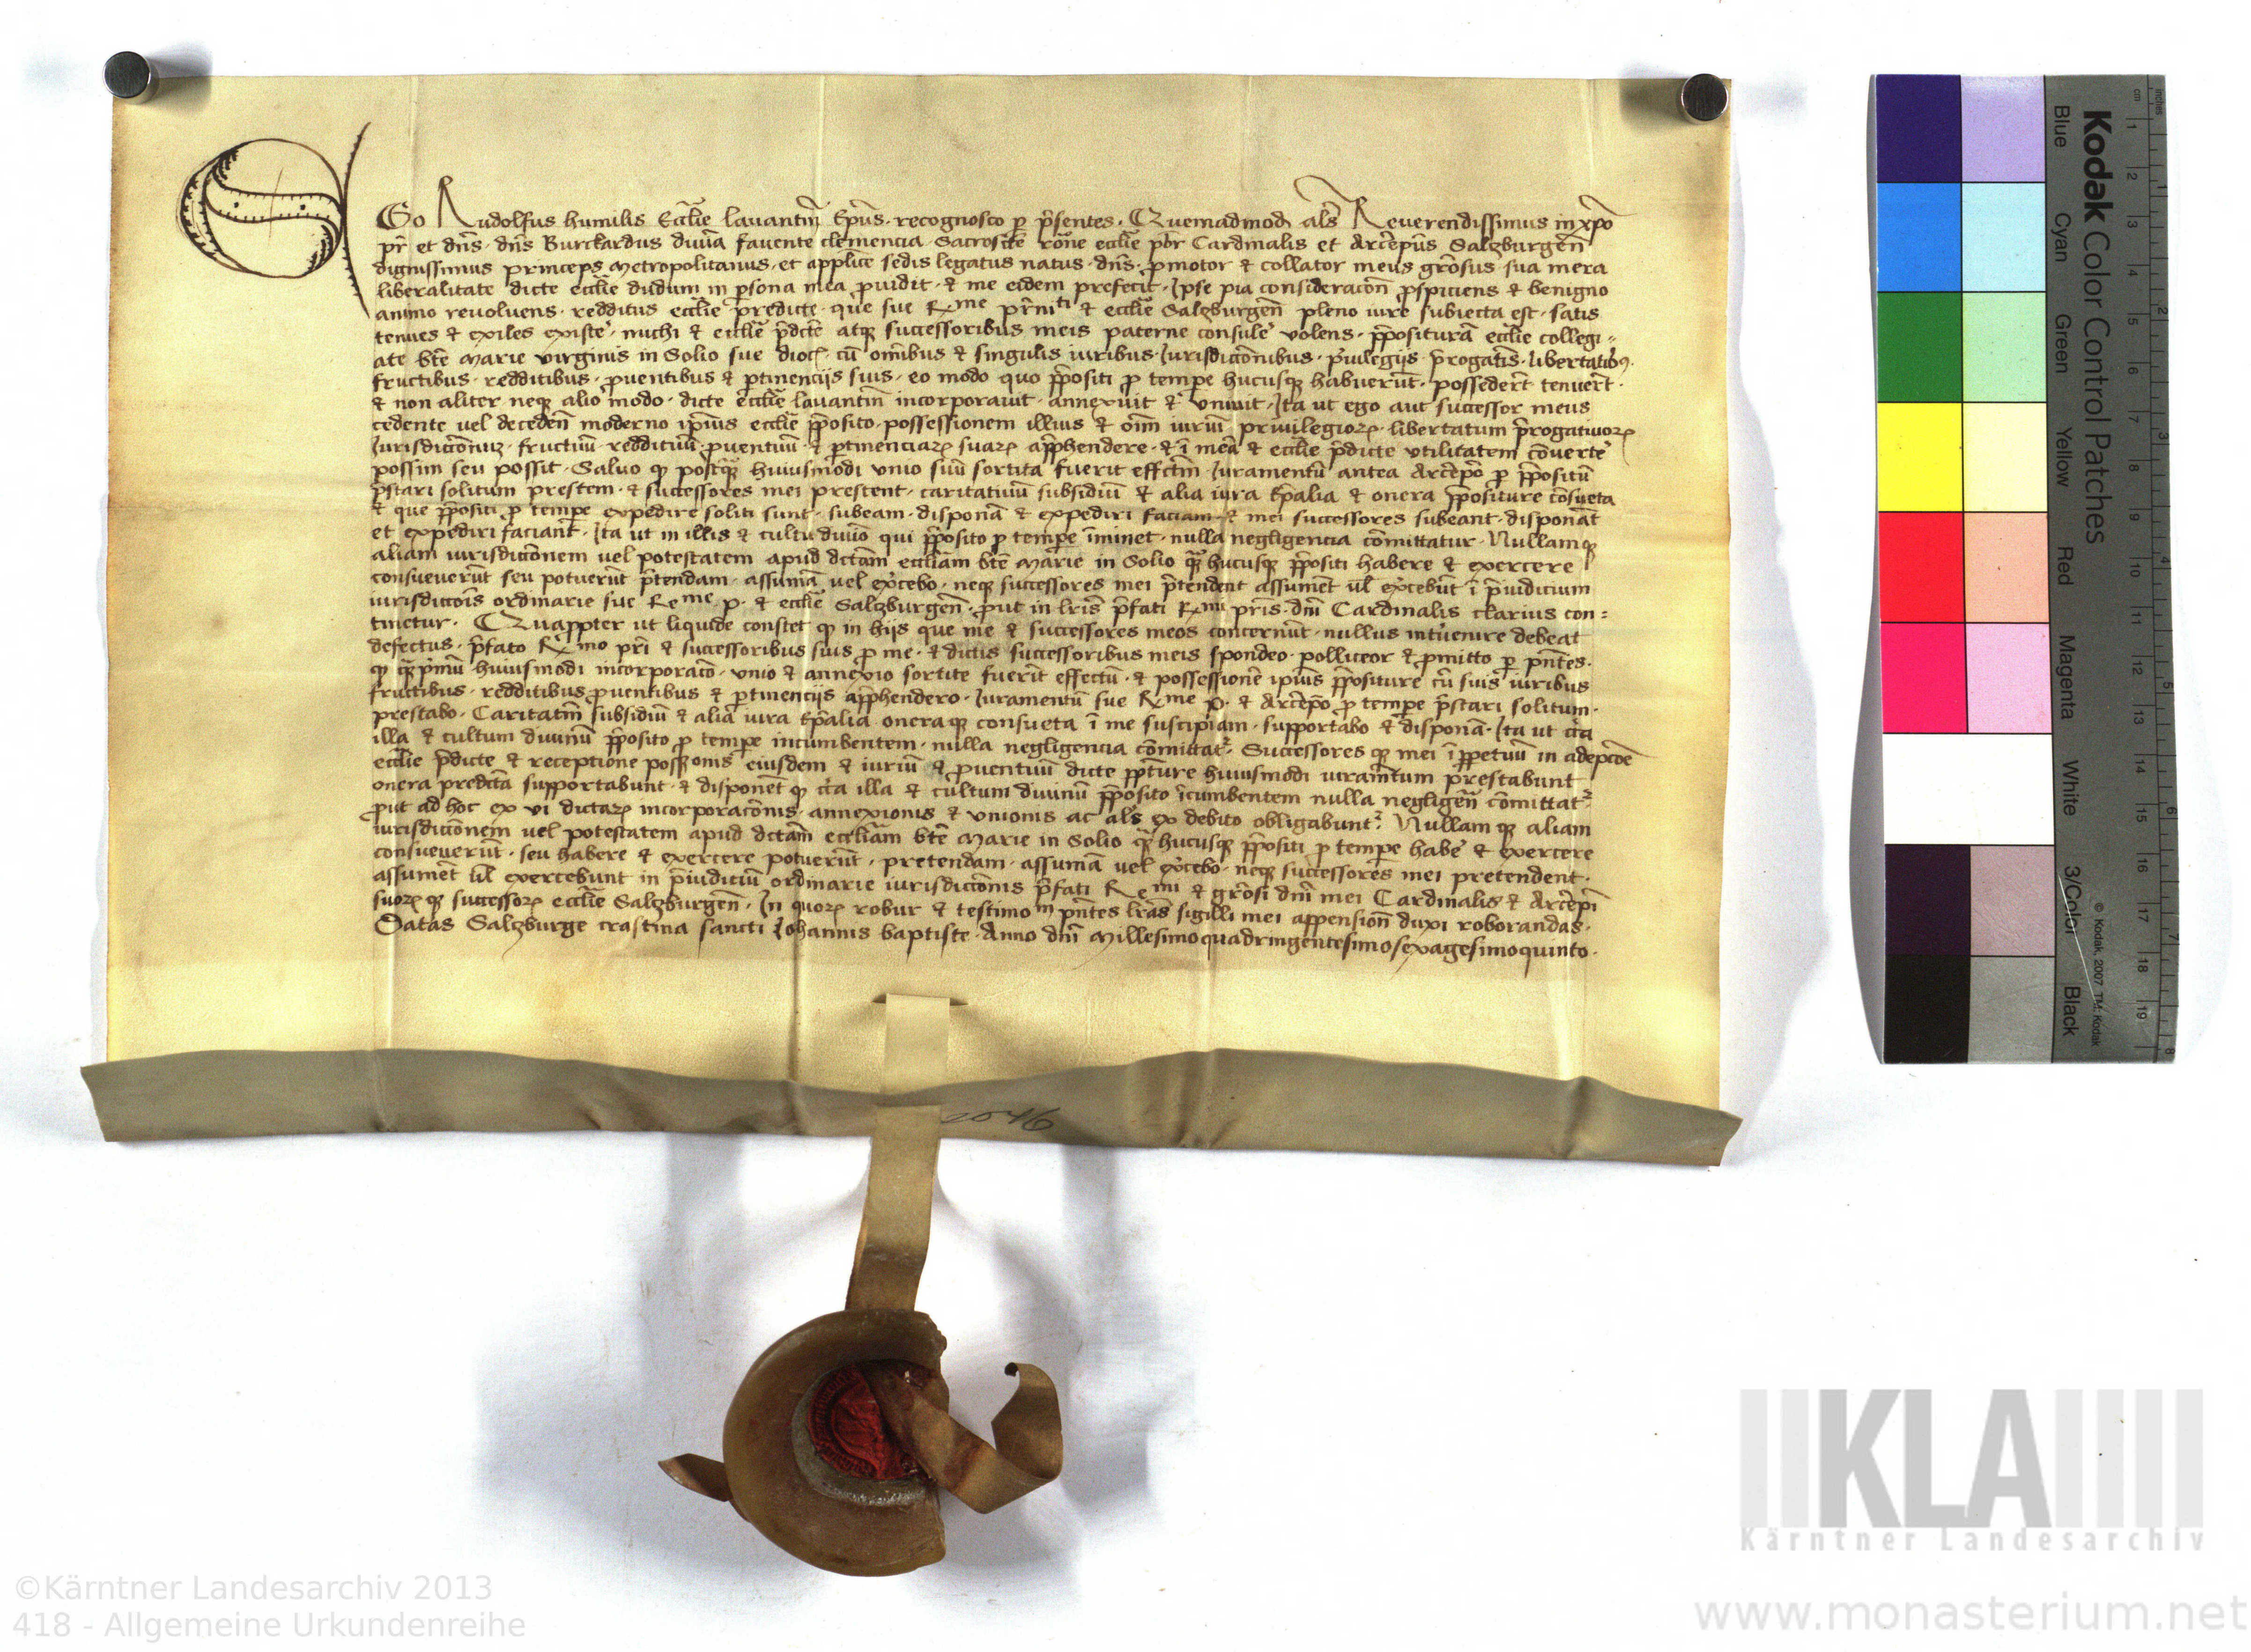 EGo Rudolfus humilis Eccl̄ie lauantin̄ Ep̄us · recognosco ꝑ p̄sentes · Quemadmodū al̄s Reuerendissimus in xp̄o
pr̄ et dn̄s · dn̄s Burckardus diuīa fauente clemencia · Sacroscīe rōne eccl̄ie p̄br Cardinalis et Arc̄ep̄us Salczburgen̄
dignissimus princeps metropolitanus · et applice sedis legatus natus · dn̄s · ꝓmotor & collator meus grōsus sua mera
liberalitate dicte eccl̄ie dudum in ꝑsona mea ꝓuidit · & me eidem prefecit · Ipse pia consideracōn ꝓspiciens & benigno
animo reuoluens · redditus eccl̄ie predicte · que sue Rme pr̄nitⁱ & eccl̄ie Salczburgen̄ pleno iure subiecta est · satis
tenues & exiles existe᾿ · michi & eccl̄ie p̄dcte atqꝫ successoribus meis paterne consule᾿ volens · p̄posituram eccl̄ie collegi⸗
ate bt̄e Marie virginis in Solio sue dioc̄ · cū om̄ibus & singulis iuribus · Iurisdictōnibus · p̄uilegijs p̄rogatīs · libertatibꝫ ·
fructibus · redditibus · ꝓuentibus & ꝑtinencijs suis · eo modo quo p̄positi ꝓ tempe hucusqꝫ habuerūt · possederūt tenuerūt ·
& non aliter neqꝫ alio modo · dicte eccl̄ie lauantin̄ incorporauit · annexuit & vniuit · Ita ut ego aut successor meus
cedente uel deceden̄ moderno ip̄ius eccl̄ie p̄posito · possessionem illius & om̄ iurium priuilegioꝝ · libertatum p̄rogatiuoꝝ
Iurisdictōnum · fructuū reddituū ꝓuentuū · & ꝑtinenciaꝝ suaꝝ app̄hendere · & ī meā & eccl̄ie p̄dicte vtilitatem cōuerte᾿
possim seu possit · Saluo qꝫ postqꝫ huiusmodi vnio suū sortita fuerit effctm̄ · Iuramentū antea Arc̄ep̄o ꝓ p̄positū
p̄stari solitum prestem · & successores mei prestent · caritatiuū subsidiū & alia iura Ep̄alia & onera p̄positure cōsueta
& que p̄positi ꝓ tempe expedire soliti sunt · subeam · disponā & expediri faciam · & mei successores subeant · disponāt
et expediri faciānt · Ita ut in illis & cultu diuīo qui p̄posito ꝓ tempe īminet · nulla negligencia cōmittatur · Nullamqꝫ
aliam iurisdictōnem uel potestatem apud dctam eccl̄iam bt̄e Marie in Solio qꝫ hucusqꝫ p̄positi habere & exercere
consueuerūt seu potuerūt p̄tendam · assumā uel ex᾿cebo · neqꝫ successores mei p̄tendent assumēt ul̄ ex᾿cebūt ī p̄iudicium
iurisdictōis ordinarie sue Reme p · & eccl̄ie Salczburgen̄ · ꝓut in lr̄is p̄fati Rmi pr̄is · dn̄i Cardinalis clarius con⸗
tinetur · Quapꝓpter ut liquide constet qꝫ in hijs que me & successores meos concernūt · nullus int᾿uenire debeat
defectus · p̄fato Rmo pr̄i & successoribus suis ꝓ me · & dictis successoribus meis spondeo · polliceor & ꝓmitto ꝑ pn̄tes ·
qꝫ qꝫ p̄mū huiusmodi incorporacō · vnio & annexio sortite fuerīt effectū · & possessionē ip̄ius p̄positure cū suis iuribus
fructibus · redditibus ꝓuentibus & ꝑtinencijs app̄hendero · Iuramentū sue Rme p · & Arc̄ep̄o ꝓ tempe p̄stari solitum ·
prestabo · Caritatim̄ subsidiū & alia iura Ep̄alia oneraqꝫ consueta ī me suscipiam · supportabo & disponā · Ita ut c᾿ca
illa & cultum diuinū p̄posito ꝓ tempe incumbentem · nulla negligencia cōmittat᾿ · Successores qꝫ mei ī ꝑpetuū in adepcōe
eccl̄ie p̄dicte & receptione possꝛonis eiusdem & iuriū & ꝓuentuū dicte pp̄ture huiusmodi iuram̄tum prestabunt
onera predicta supportabunt & disponēt qꝫ c᾿ca illa & cultum diuinū p̄posito īcumbentem nulla negligen̄ cōmittat᾿
ꝓut ad hoc ex vi dictaꝝ incorporacōnis · annexionis & vnionis ac al̄s ex debito obligabunt᾿ · Nullam qꝫ aliam
iurisdictōnem uel potestatem apud dctam eccl̄iam bt̄e Marie in Solio qꝫ hucusqꝫ p̄positi ꝓ tempe habe᾿ & exercere
consueuerūt · seu habere & exercere potuerūt · pretendam · assumā uel ex᾿cebo · neqꝫ successores mei pretendent ·
assumēt ul̄ exercebunt in p̄iudiciū ordinarie iurisdictōnis p̄fati Remi & grōsi dn̄i mei Cardinalis & Arc̄ep̄i
suoꝝ qꝫ successoꝝ eccl̄ie Salczburgen̄ · In quoꝝ robur & testimom pn̄tes lr̄as sigilli mei appensiōn duxi roborandas ·
Datas Salczburge crastina sancti Iohannis baptiste · Anno dn̄i Millesimoquadringentesimosexagesimoquinto ·
Kodak Color Control Patches
Blue Cyan Green Yellow Red Magenta White 3/Color Black
© Kodak, 2007 TM: Kodak
cm 1 2 3 4 5 6 7 8 9 10 11 12 13 14 15 16 17 18 19
inches 1 2 3 4 5 6 7 8
KLA
Kärntner Landesarchiv
©Kärntner Landesarchiv 2013
418 - Allgemeine Urkundenreihe
www.monasterium.net